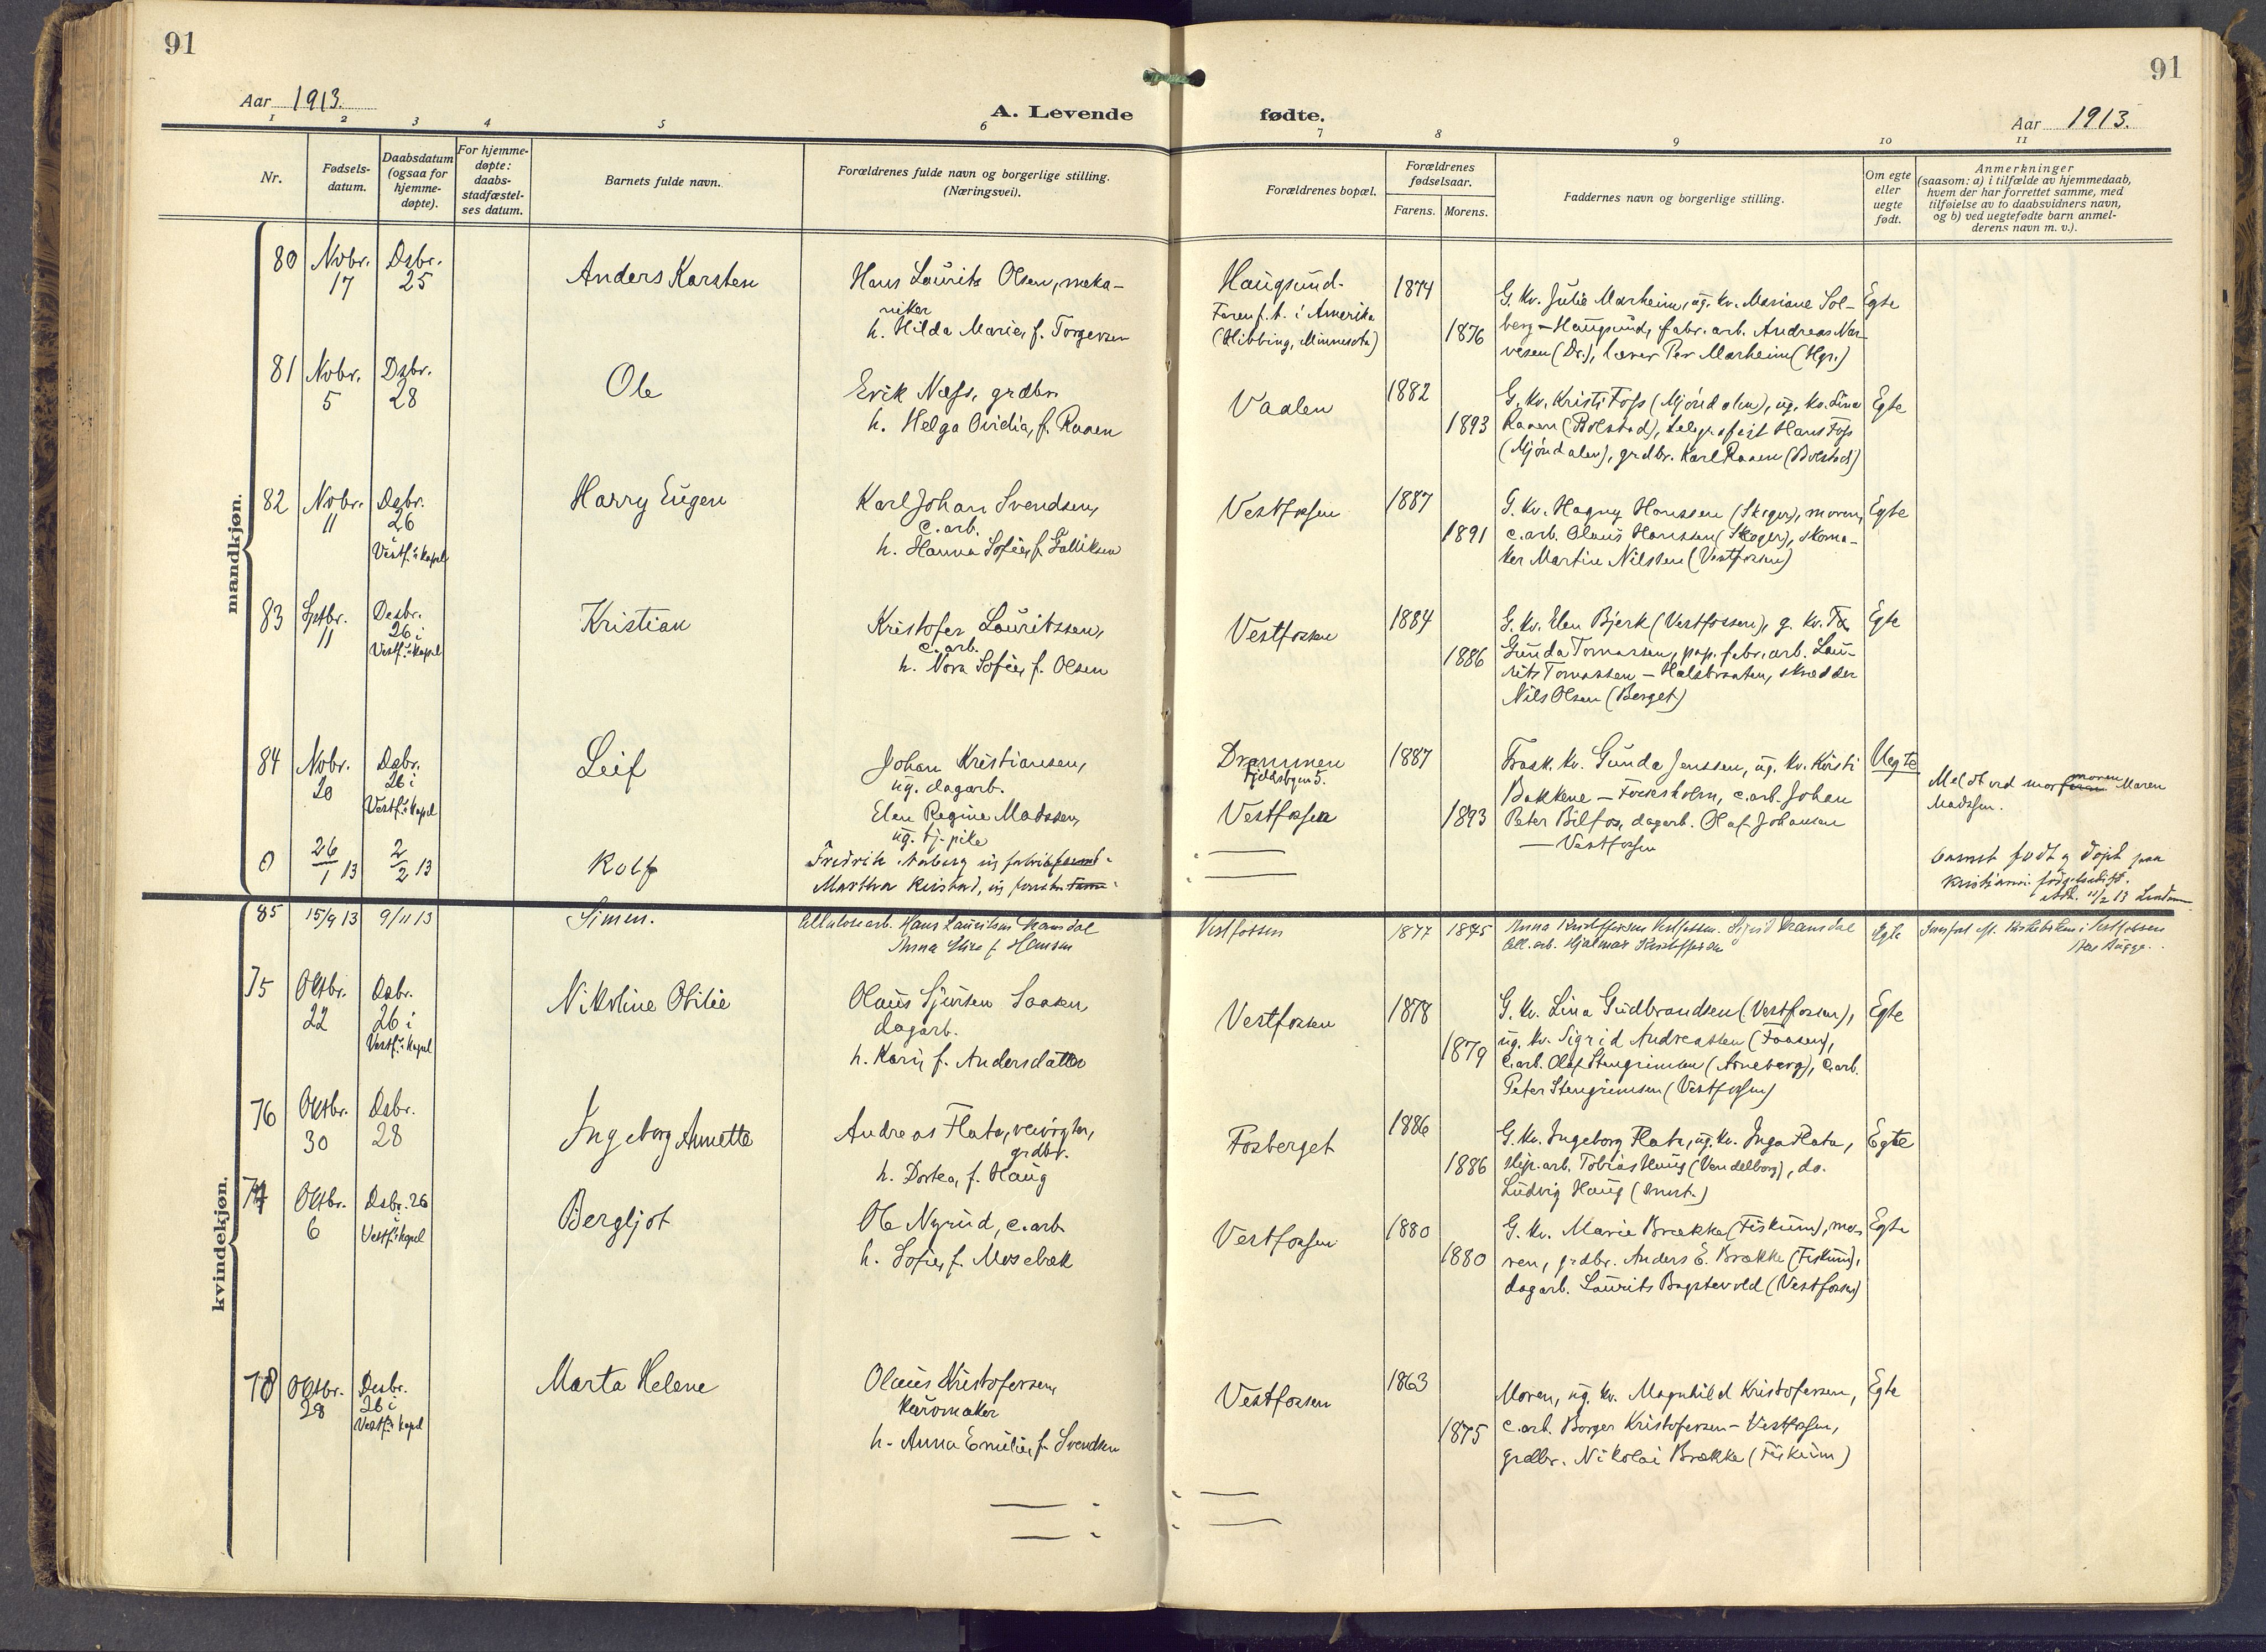 91
91
Aar 1913.
A. Levende
fødte.
Aar 1913.
1 2 3 4 5 6 7 8 9 10 11
Nr.
Fødsels-
datum.
Daabsdatum
(ogsaa for
hjemme-
døpte).
For hjemme-
døpte:
daabs-
stadfæstel-
ses datum.
Barnets fulde navn.
Forældrenes fulde navn og borgerlige stilling.
(Næringsvei).
Forældrenes bopæl.
Forældrenes
fødselsaar.
Farens. Morens.
Faddernes navn og borgerlige stilling.
Om egte
eller
uegte
født.
Anmerkninger
(saasom: a) i tilfælde av hjemmedaab,
hvem der har forrettet samme, med
tilføielse av to daabsvidners navn,
og b) ved uegtefødte barn anmel-
derens navn m. v.).
mandkjøn.
80
Nvbr.
17
Dsbr.
25
Anders Karsten
Hans Laurits Olsen, meka-
niker
h. Hilda Marie, f. Torgersen
Haugsund.
Faren f. t. i Amerika
(Hibbing, Minnesota)
1874
1876
G. kv. Julie Marheim, ug. kv. Mariane Sol-
berg - Haugsund, fabr. arb. Andreas Nar-
vesen (Dr.), lærer Per Marheim (Hgs.)
Egte
81
Nvbr.
5
Dsbr.
28
Ole
Erik Næss, grdbr.
h. Helga Ovidia, f. Raaen
Vaalen
1882
1893
G. kv. Kristi Foss (Mjøndalen), ug. kv. Lina
Raaen (Bolstad), telegrafist Hans Foss
(Mjøndalen), grdbr. Karl Raaen (Bolstad)
Egte
82
Nvbr.
11
Dsbr.
26
i
Vestf.'s kapel
Harry Eugen
Karl Johan Svendsen,
c. arb.
h. Hanna Sofie, f. Gulliksen
Vestfossen
1887
1891
G. kv. Hagny Hanssen (Skoger), moren,
c. arb. Olaus Hanssen (Skoger), skoma-
ker Martin Nilssen (Vestfossen)
Egte
83
Sptbr.
11
Desbr.
26 i
Vestf.'s kapel
Kristian
Kristofer Lauritssen,
c. arb.
h. Nora Sofie, f. Olsen
Vestfossen
1884
1886
G. kv. Elen Bjerk (Vestfossen), g. kv.
Gunda Tomassen, pap. fabr. arb. Lau-
rits Tomassen - Halsbraaten, skrædder
Nils Olsen (Berget)
Egte
84
Nvbr.
20
Dsbr.
26 i
Vestf.'s kapel
Leif
Johan Kristiansen,
ug. dagarb.
Elen Regine Madssen,
ug. tj. pike
Drammen
Vestfossen
1887
1893
Frask. kv. Gunda Jenssen, ug. kv. Kirsti
Bakkene - Fockesholm, c. arb. Johan
Peter Bilfos, dagarb. Olaf Johansen
- Vestfossen
Uegte
Meldt ved mormoren Maren
Madssen.
0
26/1 13
2/2 13
Rolf
Fredrik Norberg ug
Martha
Barnet født og døpt paa
Kristiania fødselsstift.
85
15/9 13
9/11 13
Simen.
Cellulosearb. Hans Lauritsen Kramsdal
Anna Elise f. Hansen
Vestfossen
1877
1875
Anna Kristoffersen Vestfossen. Sigrid Kramsdal
Cell. arb. Hjalmar Kristoffersen
Egte
Innført eft. Kirkeboken i Vestfossen
kvindekjøn.
75
Oktbr.
22
Dsbr.
26 i
Vestf.'s kapel
Nikoline Otilie
Olaus Sjursen Saasen,
dagarb.
h. Kari, f. Andersdatter
Vestfossen
1878
1879
G. kv. Lina Gudbrandsen (Vestfossen),
ug. kv. Sigrid Andreassen (Faasen),
c. arb. Olaf Stengrimsen (Arneberg), c. arb.
Peter Stengrimsen (Vestfossen)
Egte
76
Oktbr.
30
Dsbr.
28
Ingeborg Annette
Andreas Flata, veivogter,
grdbr.
h. Dortea, f. Haug
Fosberget
1886
1886
G. kv. Ingeborg Flata, ug. kv. Inga Flata,
slip. arb. Tobias Haug (Vendelborg), do.
Ludvig Haug (smst.)
Egte
77
Oktbr.
6
Dsbr. 26
i
Vestf.'s kapel
Bergljot
Ole Nyrud, c. arb.
h. Sofie, f. Mosebæk
Vestfossen
1880
1880
G. kv. Marie Brække (Fiskum), mo-
ren, grdbr. Anders E. Brække (Fiskum),
dagarb. Laurits Bagstevold (Vestfossen)
Egte
78
Oktbr.
28
Desbr.
26 i
Vestf.'s kapel
Marta Helene
Olaus Kristofersen,
kurvmaker
h. Anna Emilie, f. Svendsen
Vestfossen
1863
1875
Moren, ug. kv. Magnhild Kristofersen,
c. arb. Borger Kristofersen - Vestfossen,
grdbr. Nikolai Brække (Fiskum)
Egte